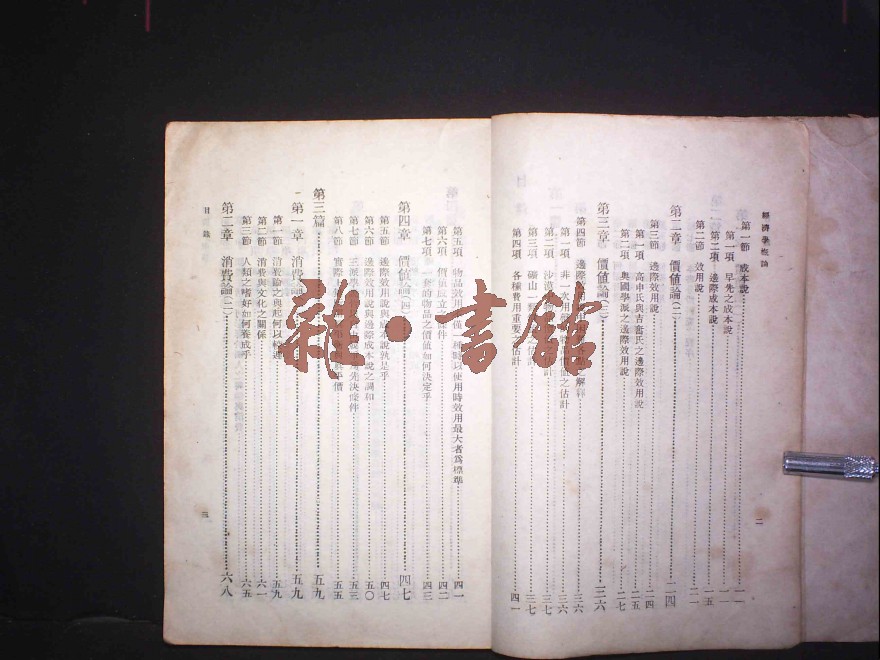 經濟學概論
第一節 成本說 一一
第一項 早先之成本說 一一
第二項 邊際成本說 一五
第二節 效用說 二一
第二章 價值論(二) 二四
第三節 邊際效用說 二四
第一項 高申氏與吉奮氏之邊際效用說 二五
第二項 奧國學派之邊際效用說 二七
第三章 價值論(三) 三六
第四節 邊際 解釋 三六
第一項 非一次用 價值之估計 三六
第二項 沙漠 計 三七
第三項 礦山一 估計 三七
第四項 各種費用重要之估計 四一
二
第五項 物品效用 僅一種時以使用時效用最大者爲標準 四一
第六項 價值成立 條件 四二
第七項 一套的物品之價值如何決定乎 四三
第四章 價值論(四) 四七
第五節 邊際效用說與成本說孰是乎 四七
第六節 邊際效用說與邊際成本說之調和 五〇
第七節 三派學 先決條件 五三
第八節 實際 價 五五
第三篇 五九
第一章 消費論 五九
第一節 消費論之興起何以較遲 五九
第二節 消費與文化之關係 六一
第三節 人類之嗜好如何養成乎 六五
第二章 消費論(二) 六八
目錄
三
雜·書館